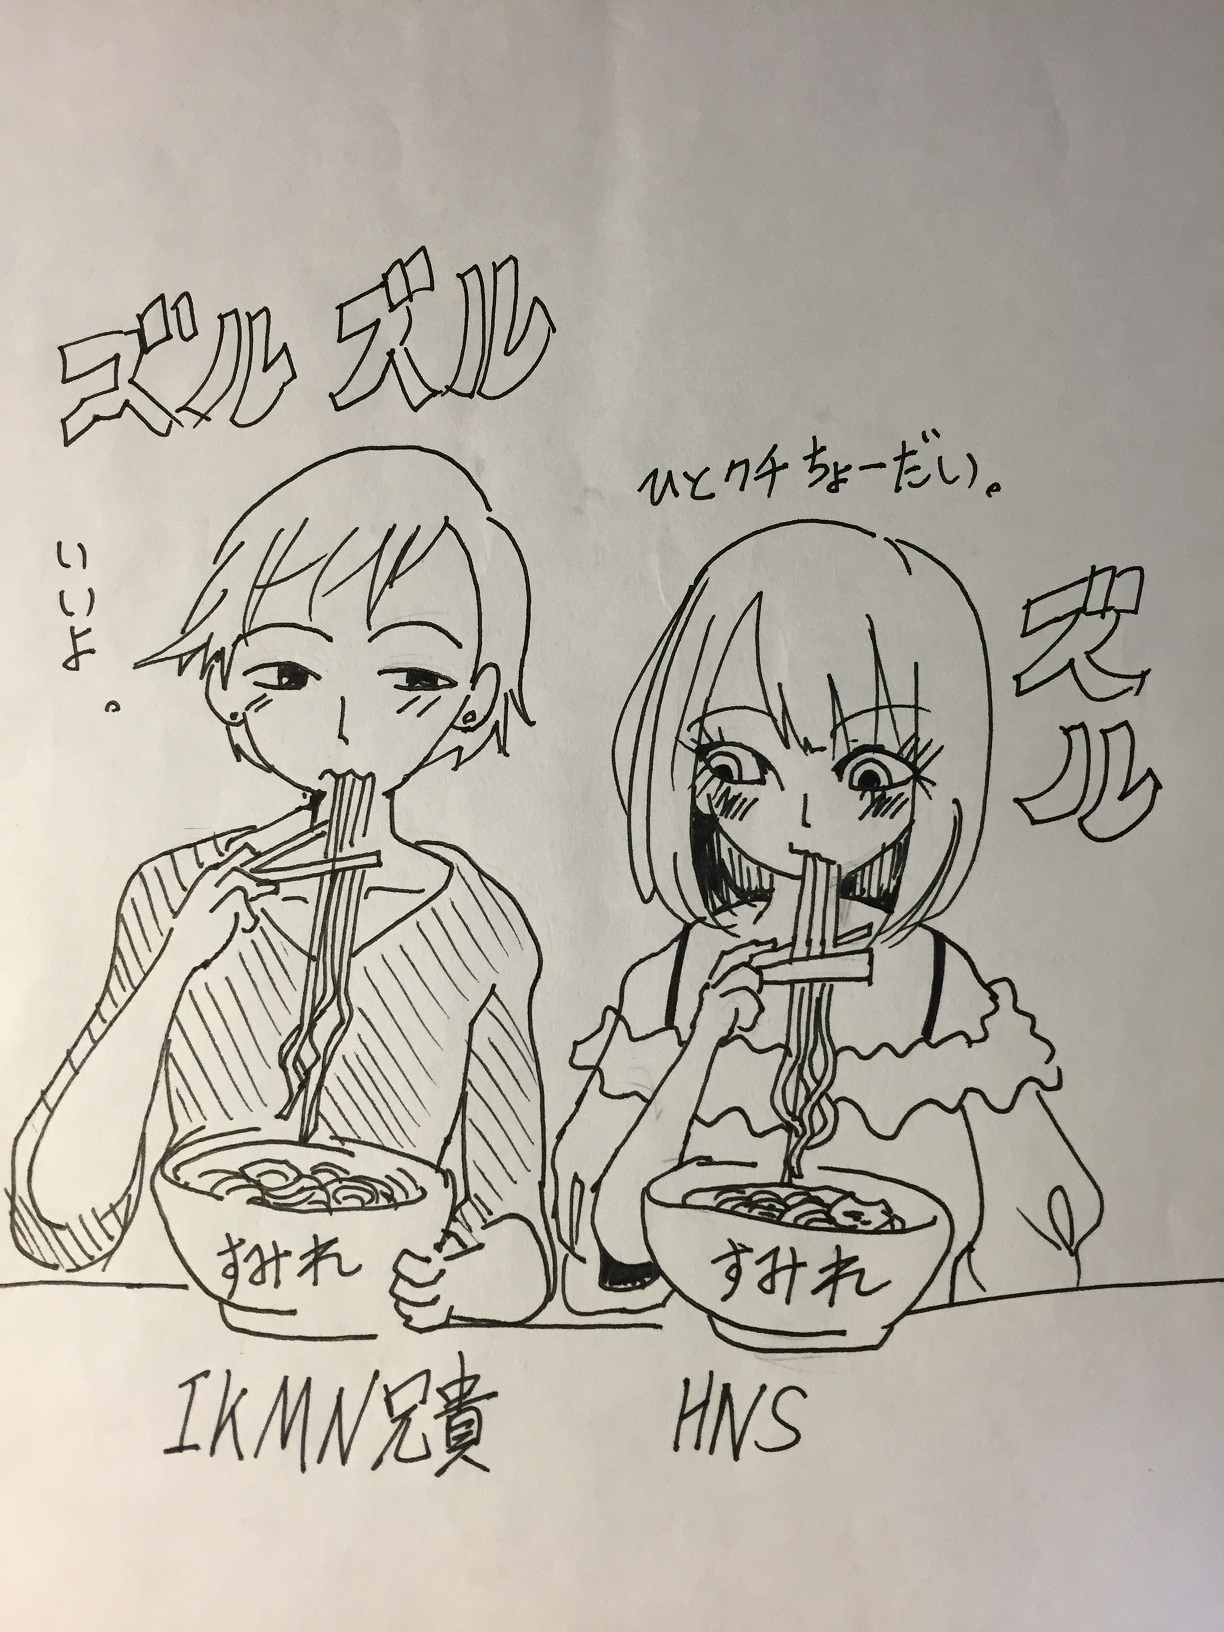 ズルズル
ひとクチちょーだい。
いいよ。
ズル
すみれ
すみれ
IKMN兄貴
HNS